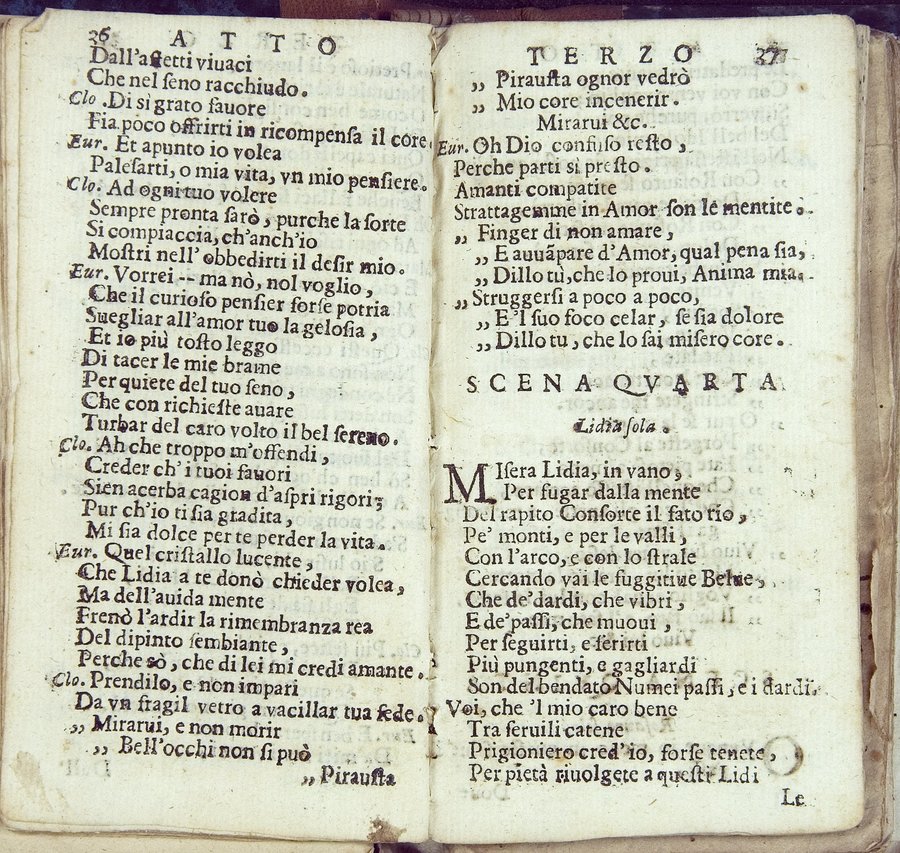 26 ATTO
Dall'affetti viuaci
Che nel ſeno racchiudo.
Clo. Di sì grato fauore
Fia poco offrirti in ricompenſa il core.
Eur. Et apunto io volea
Paleſarti, o mia vita, vn mio penſiere.
Clo. Ad ogni tuo volere
Sempre pronta ſarò, purche la ſorte
Si compiaccia, ch'anch'io
Moſtri nell'obbedirti il deſir mio.
Eur. Vorrei -- ma nò, nol voglio,
Che il curioſo penſier forſe potria
Suegliar all'amor tuo la geloſia,
Et io più toſto leggo
Di tacer le mie brame
Per quiete del tuo ſeno,
Che con richieſte auare
Turbar del caro volto il bel ſereno.
Clo. Ah che troppo m'offendi,
Creder ch'i tuoi fauori
Sien acerba cagion d'aſpri rigori;
Pur ch'io ti ſia gradita,
Mi ſia dolce per te perder la vita.
Eur. Quel criſtallo lucente,
Che Lidia a te donò chieder volea,
Ma dell'auida mente
Frenò l'ardir la rimembranza rea
Del dipinto ſembiante,
Perche sò, che di lei mi credi amante.
Clo. Prendilo, e non impari
Da vn fragil vetro a vacillar tua fede.
,, Mirarui, e non morir
,, Bell'occhi non ſi può
,, Pirauſta
TERZO 27
,, Pirauſta ognor vedrò
,, Mio core incenerir.
Mirarui &c.
Eur. Oh Dio confuſo reſto,
Perche parti sì preſto.
Amanti compatite
Strattagemme in Amor ſon le mentite.
,, Finger di non amare,
,, E auuãpare d'Amor, qual pena ſia,
,, Dillo tù, che lo proui, Anima mia.
,, Struggerſi a poco a poco,
,, E 'l ſuo foco celar, ſe ſia dolore
,, Dillo tu, che lo ſai miſero core.
SCENA QVARTA
Lidia ſola.
MIſera Lidia, in vano,
Per fugar dalla mente
Del rapito Conſorte il fato rio,
Pe' monti, e per le valli,
Con l'arco, e con lo ſtrale
Cercando vai le fuggitiue Belue,
Che de'dardi, che vibri,
E de'paſſi, che muoui,
Per ſeguirti, e ferirti
Più pungenti, e gagliardi
Son del bendato Nume i paſſi, e i dardi.
Voi, che 'l mio caro bene
Tra ſeruili catene
Prigioniero cred'io, forſe tenete,
Per pietà riuolgete a queſti Lidi
Le